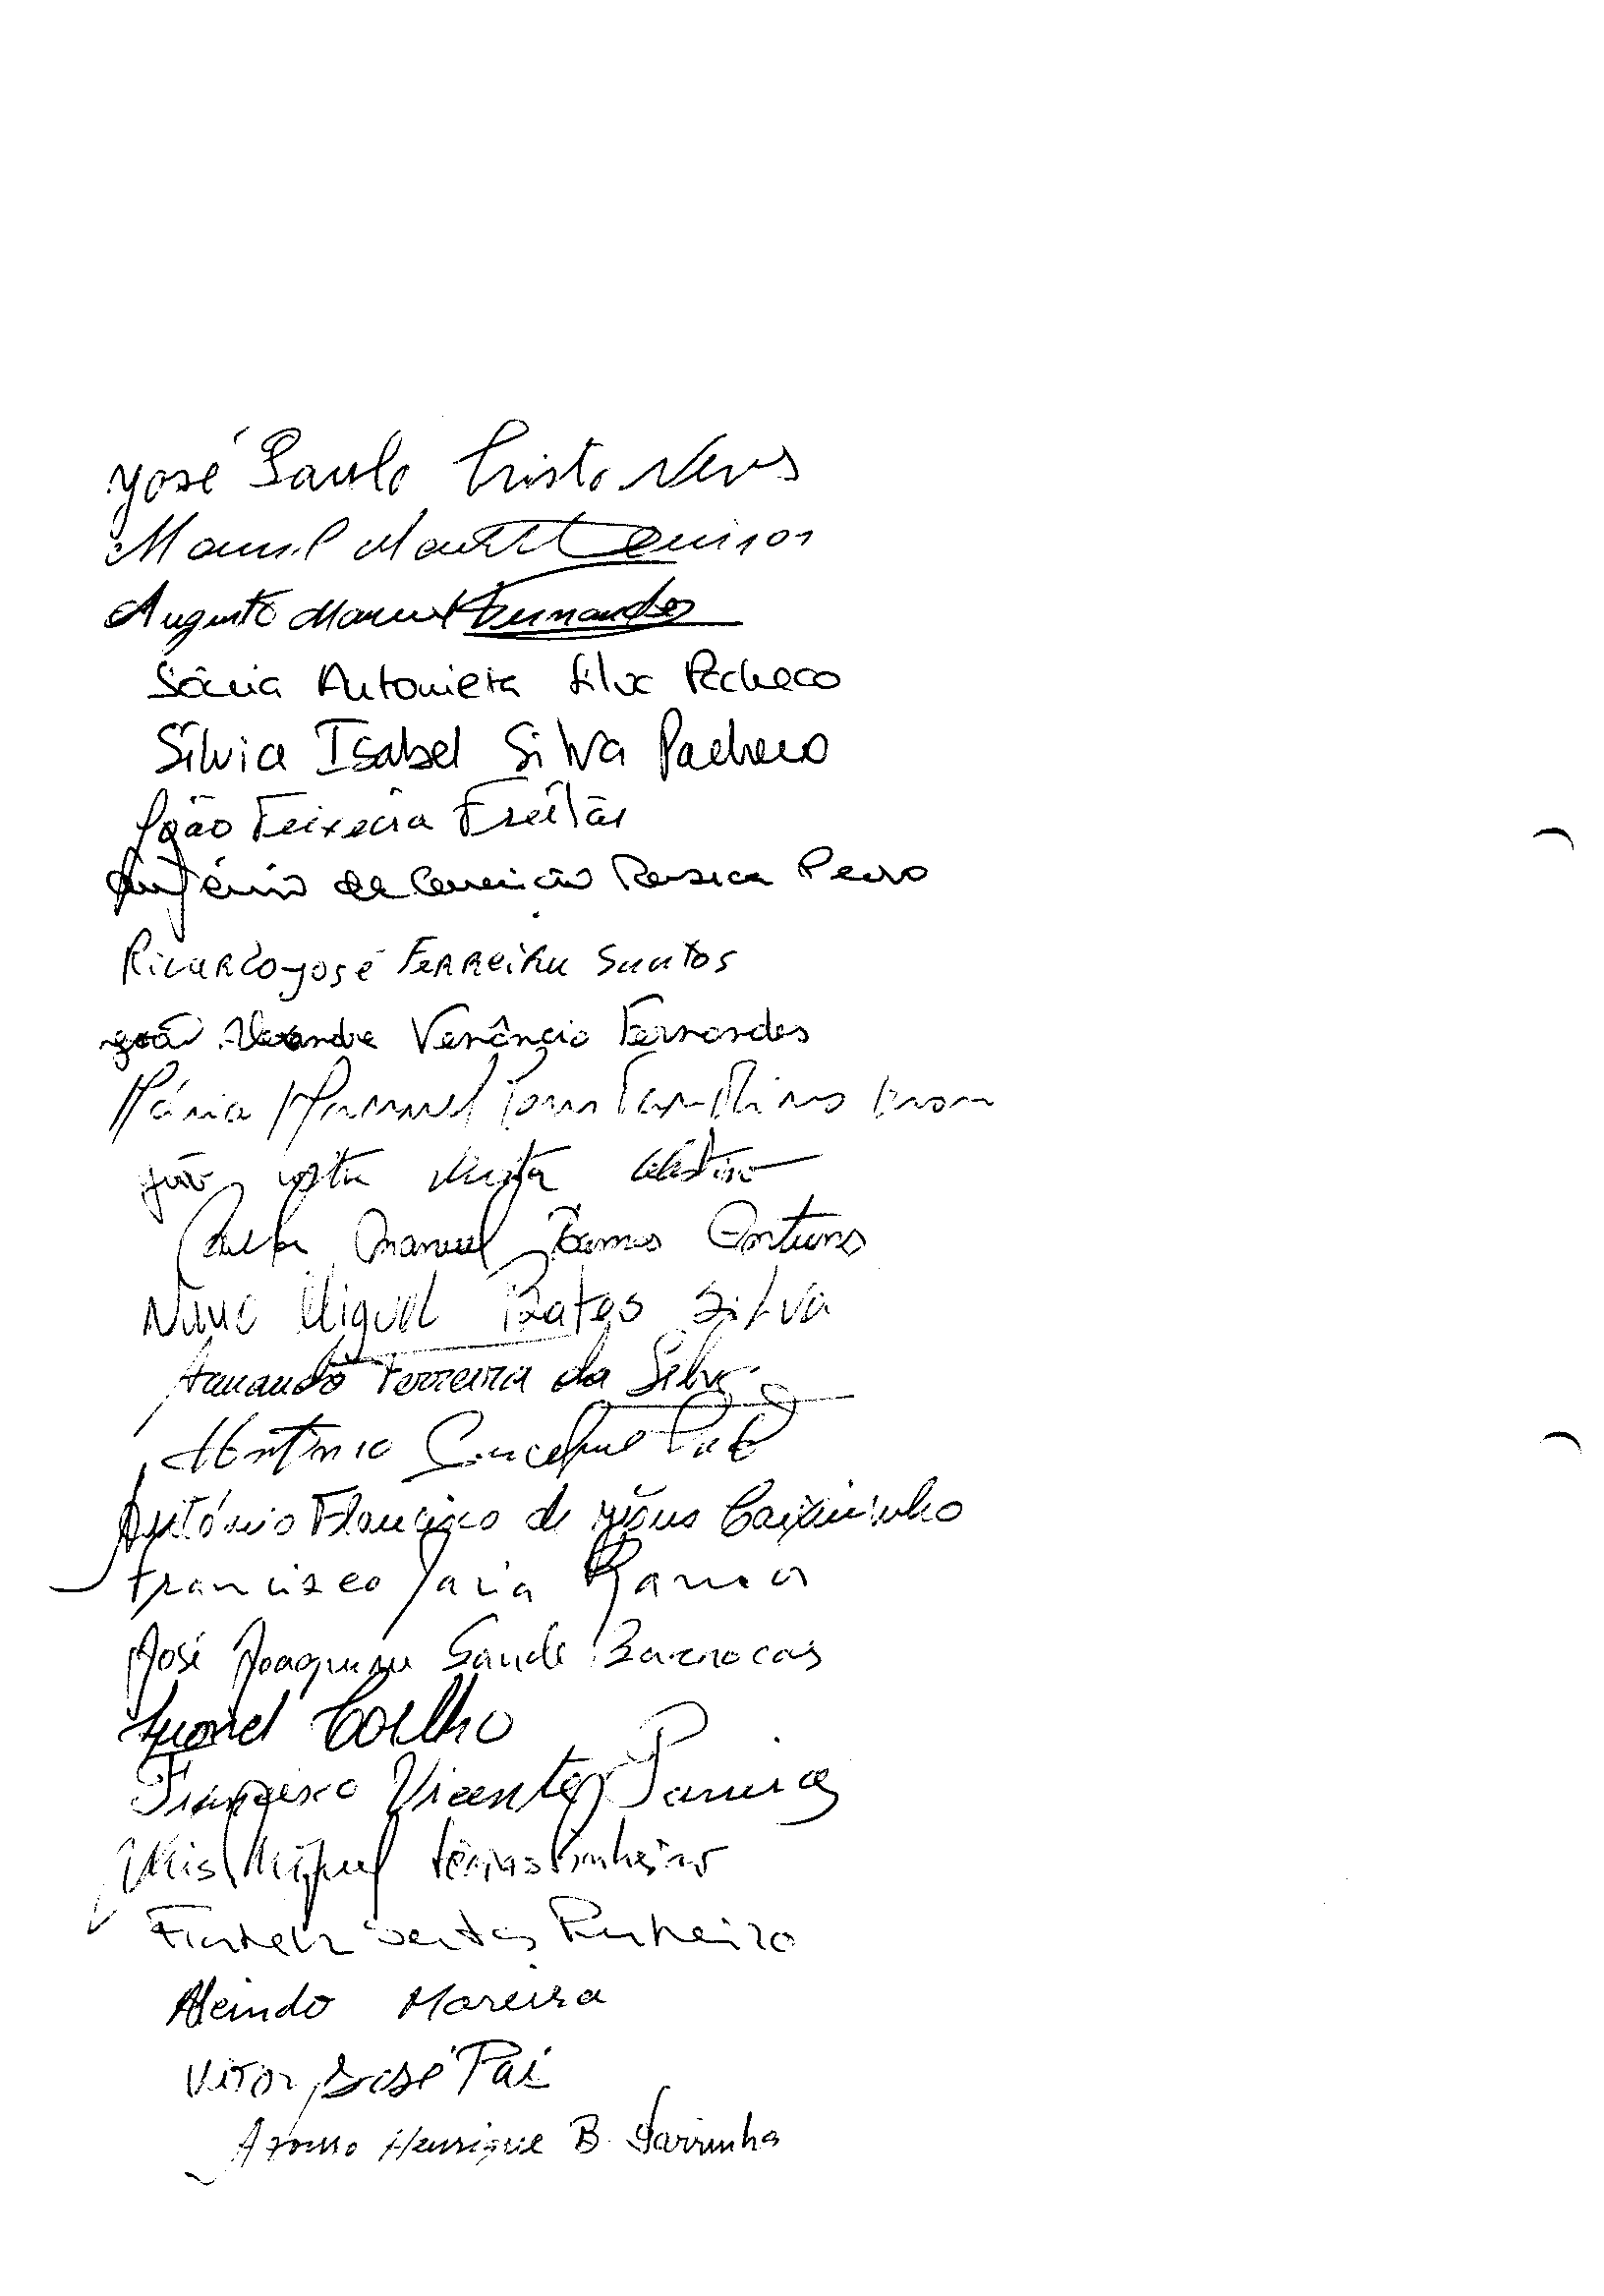 José Paulo Cristo Neves
Manuel
Augusto Manuel Fernandes
Sónia Antonieta Silva Pacheco
Sílvia Isabel Silva Pacheco
João Teixeira Freitas
António da Conceição Pedro
Ricardo José Ferreira Santos
João Alexandre Venâncio Fernandes
Mária Manuel Constantino
João Costa
Carlos Manuel Ramos Antunes
Nuno Miguel Batos Silva
Armando Ferreira da Silva
António
António Francisco de Jesus Caixinho
Francisco Faria Ramos
José Joaquim Saude Barrocas
Leonel Coelho
Francisco Vicente Parreira
Luis Miguel Pinheiro
Pinheiro
Alcindo Moreira
Vitor José Pai
Afonso Henrique B. Farrinha